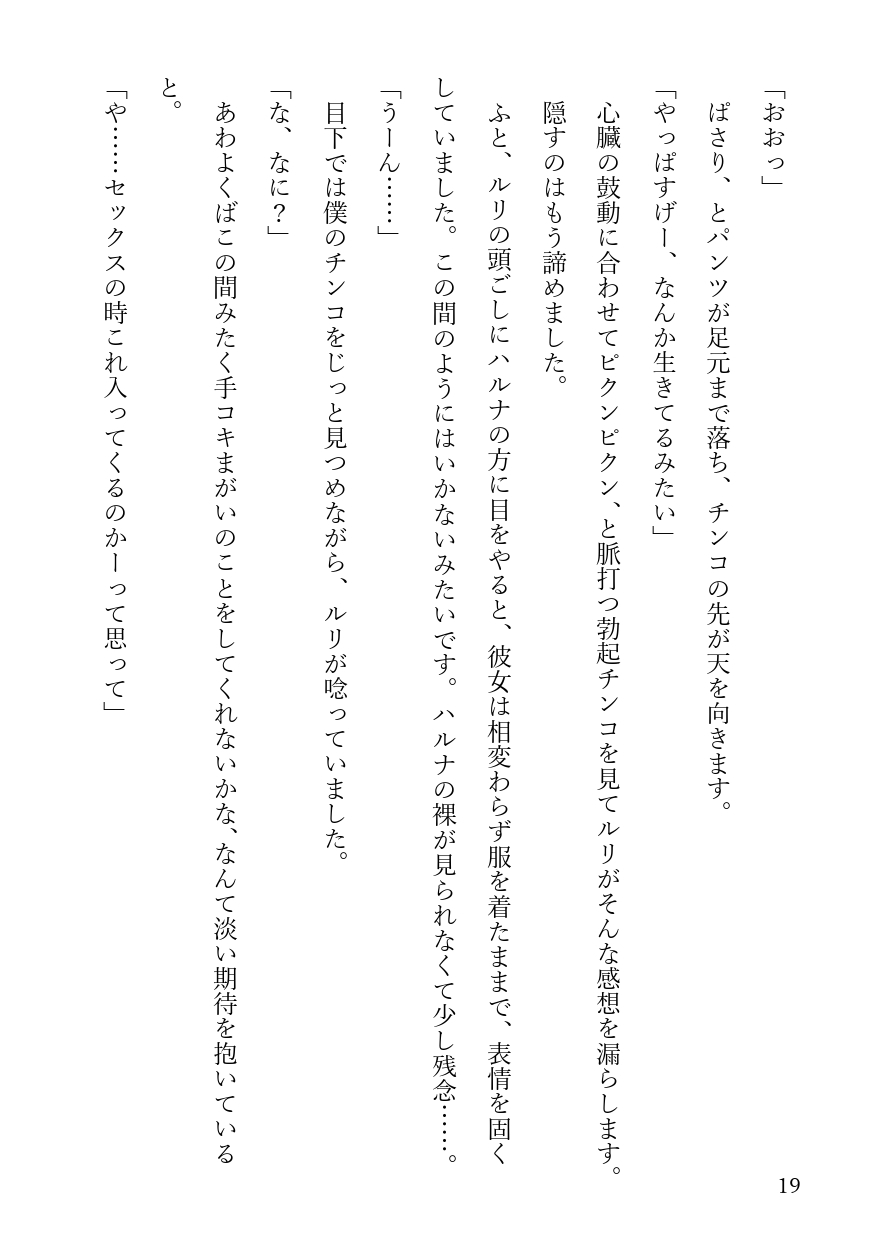 「おおっ」
ぱさり、とパンツが足元まで落ち、チンコの先が天を向きます。
「やっぱすげー、なんか生きてるみたい」
心臓の鼓動に合わせてピクンピクン、と脈打つ勃起チンコを見てルリがそんな感想を漏らします。
隠すのはもう諦めました。
ふと、ルリの頭ごしにハルナの方に目をやると、彼女は相変わらず服を着たままで、表情を固く
していました。この間のようにはいかないみたいです。ハルナの裸が見られなくて少し残念……。
「うーん……」
目下では僕のチンコをじっと見つめながら、ルリが唸っていました。
「な、なに？」
あわよくばこの間みたく手コキまがいのことをしてくれないかな、なんて淡い期待を抱いている
と。
「や……セックスの時これ入ってくるのかーって思って」
19